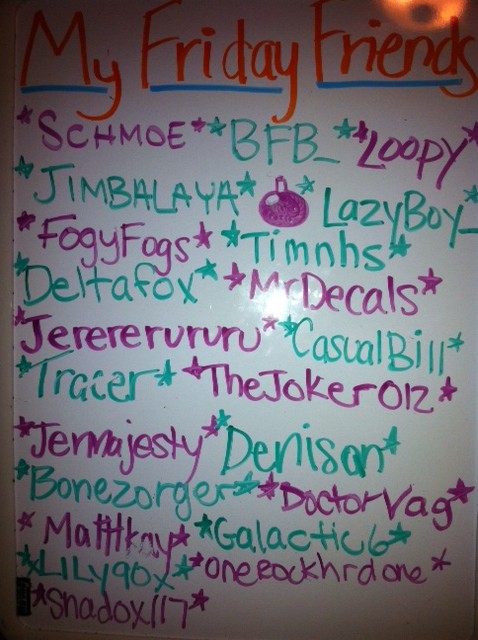 My Friday Friends
*SCHMOE* *BFB_* *Loopy*
*JIMBALAYA* * LazyBoy_*
*FogyFogs* *Timnhs*
*Deltafox* *MrDecals*
*Jerererururu* *CasualBill*
*Tracer* *TheJoker012*
*Jermajesty* *Denison*
*Bonezorger* *DoctorVag*
*Matttkay* *Galactic6*
*LILY90x* *onerockhrdone*
*Shadox117*